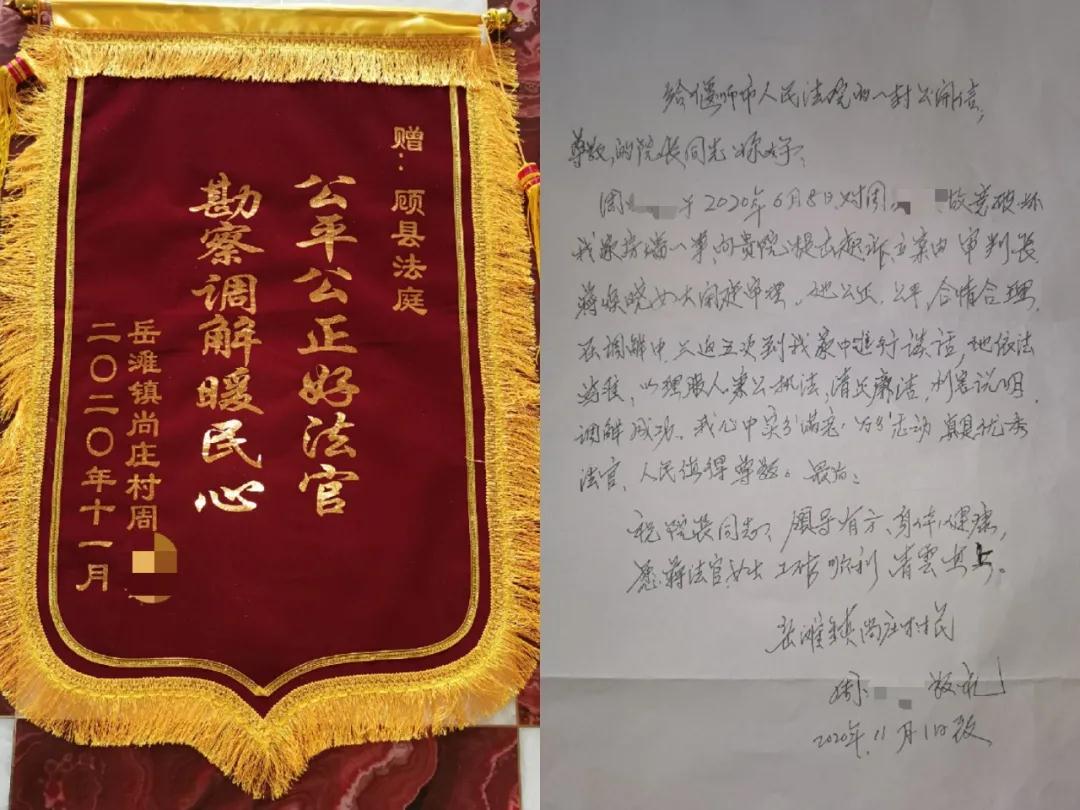 赠：顾县法庭
公平公正好法官
勘察调解暖民心
岳滩镇尚庄村周
二〇二〇年十一月
给偃师市人民法院的一封公开信，
尊敬的院长同志你好：
周 于2020年6月8日对周 故意破坏
我家房墙一事，向贵院提出起诉立案由审判长
蒋 晓 女士开庭审理，她公正，公平，合情合理，
在调解中，三返五次到我家中进行谈话，她依法
以理服人秉公执法，清正廉洁，利害说明，
调解成功。我心中 满意， 真是优秀
法官，人民值得尊敬。最后：
祝院长同志，领导有方，身体健康，
愿蒋法官女士工作顺利，清雲其上。
岳滩镇尚庄村村民
周 敬礼
2020年11月1日敬